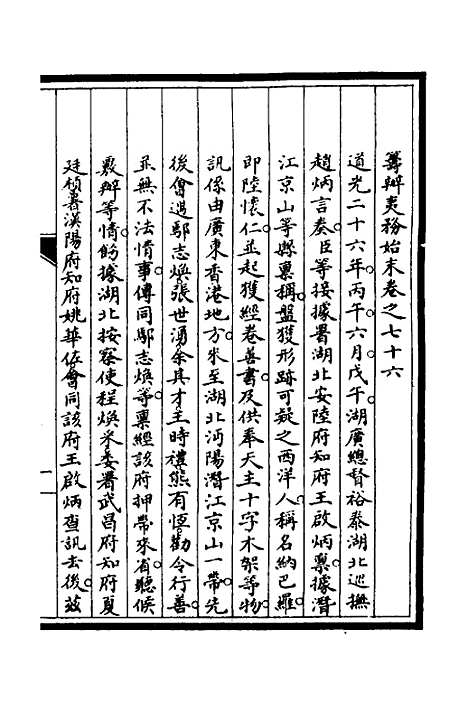 籌辦夷務始末卷之七十六
道光二十六年丙午六月戊午湖廣總督裕泰湖北巡撫
趙炳言奏臣等接據署湖北安陸府知府王啟炳稟據潛
江京山等縣稟稱盤獲形跡可疑之西洋人稱名納巴羅
即陸懷仁並起獲經卷善書及供奉天主十字木架等物
訊係由廣東香港地方來至湖北沔陽潛江京山一帶先
後會遇鄢志煥張世湧余具才王時禮熊有恆勸令行善
並無不法情事傳同鄢志煥等稟經該府押帶來省聽候
覈辦等情飭據湖北按察使程煥采委署武昌府知府夏
廷楨署漢陽府知府姚華佐會同該府王啟炳查訊去後茲
一